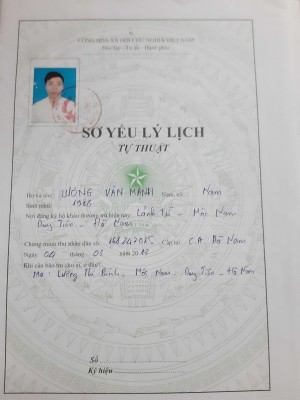 CỘNG HÒA XÃ HỘI CHỦ NGHĨA VIỆT NAM
Độc lập - Tự do - Hạnh phúc
SƠ YẾU LÝ LỊCH
TỰ THUẬT
Họ và tên: LƯƠNG VĂN MẠNH Nam, nữ: Nam
Sinh năm: 1988
Nơi đăng ký hộ khẩu thường trú hiện nay: Lảnh Trì - Mộc Nam
Duy Tiên - Hà Nam
Chứng minh thư nhân dân số: Cấp tại: C.A Hà Nam
Ngày 04 tháng 03 năm 20
Khi cần báo tin cho ai, ở đâu?
Mẹ: Lương Thị - Mộc Nam - Duy Tiên - Hà Nam
Số
Ký hiệu